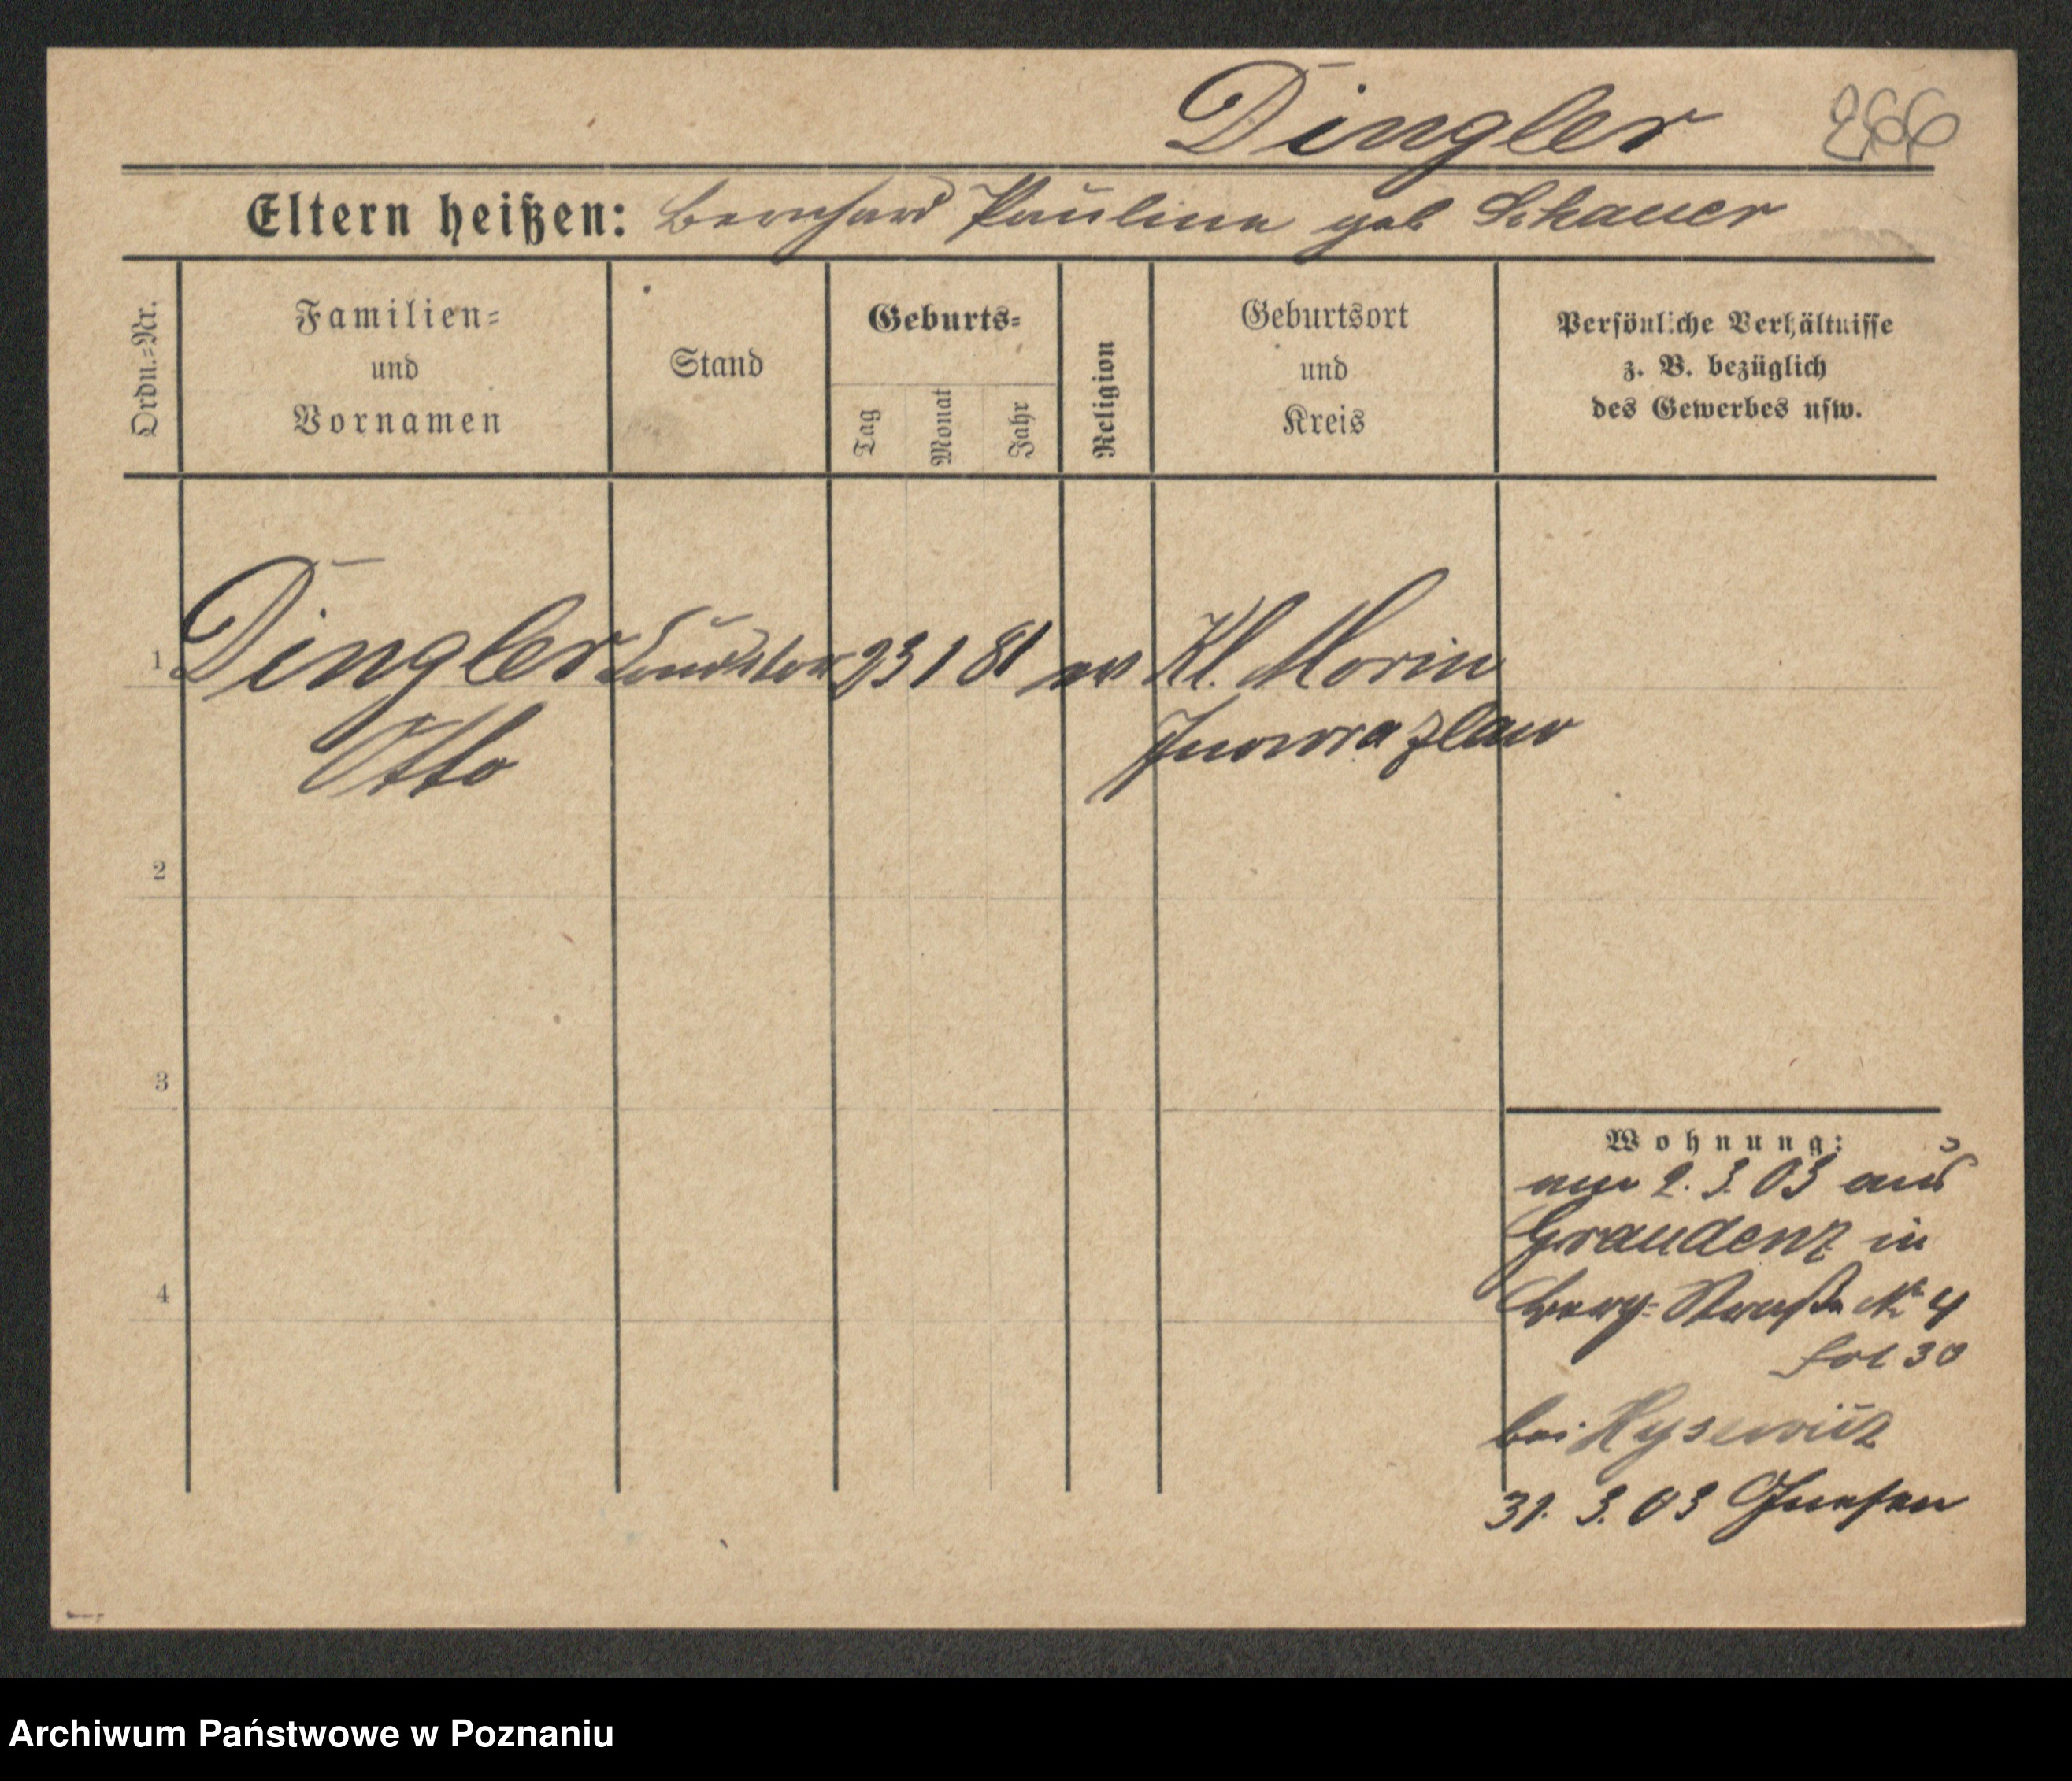 Dingler 266
Eltern heißen: Bernhard Pauline geb Schauer
Ordn.=Nr.
Familien=
und
Vornamen
Stand
Geburts=
Tag
Monat
Jahr
Religion
Geburtsort
und
Kreis
Persönliche Verhältnisse
z. B. bezüglich
des Gewerbes usw.
1 Dingler Conditor 23 1 81 ev Kl. Morin
Otto Inowrazlaw
2
3
4
Wohnung:
2. 3. 03 aus
Graudenz in
Berg= Straße № 4
fol 30
bei
31. 3. 03 Gnesen
Archiwum Państwowe w Poznaniu